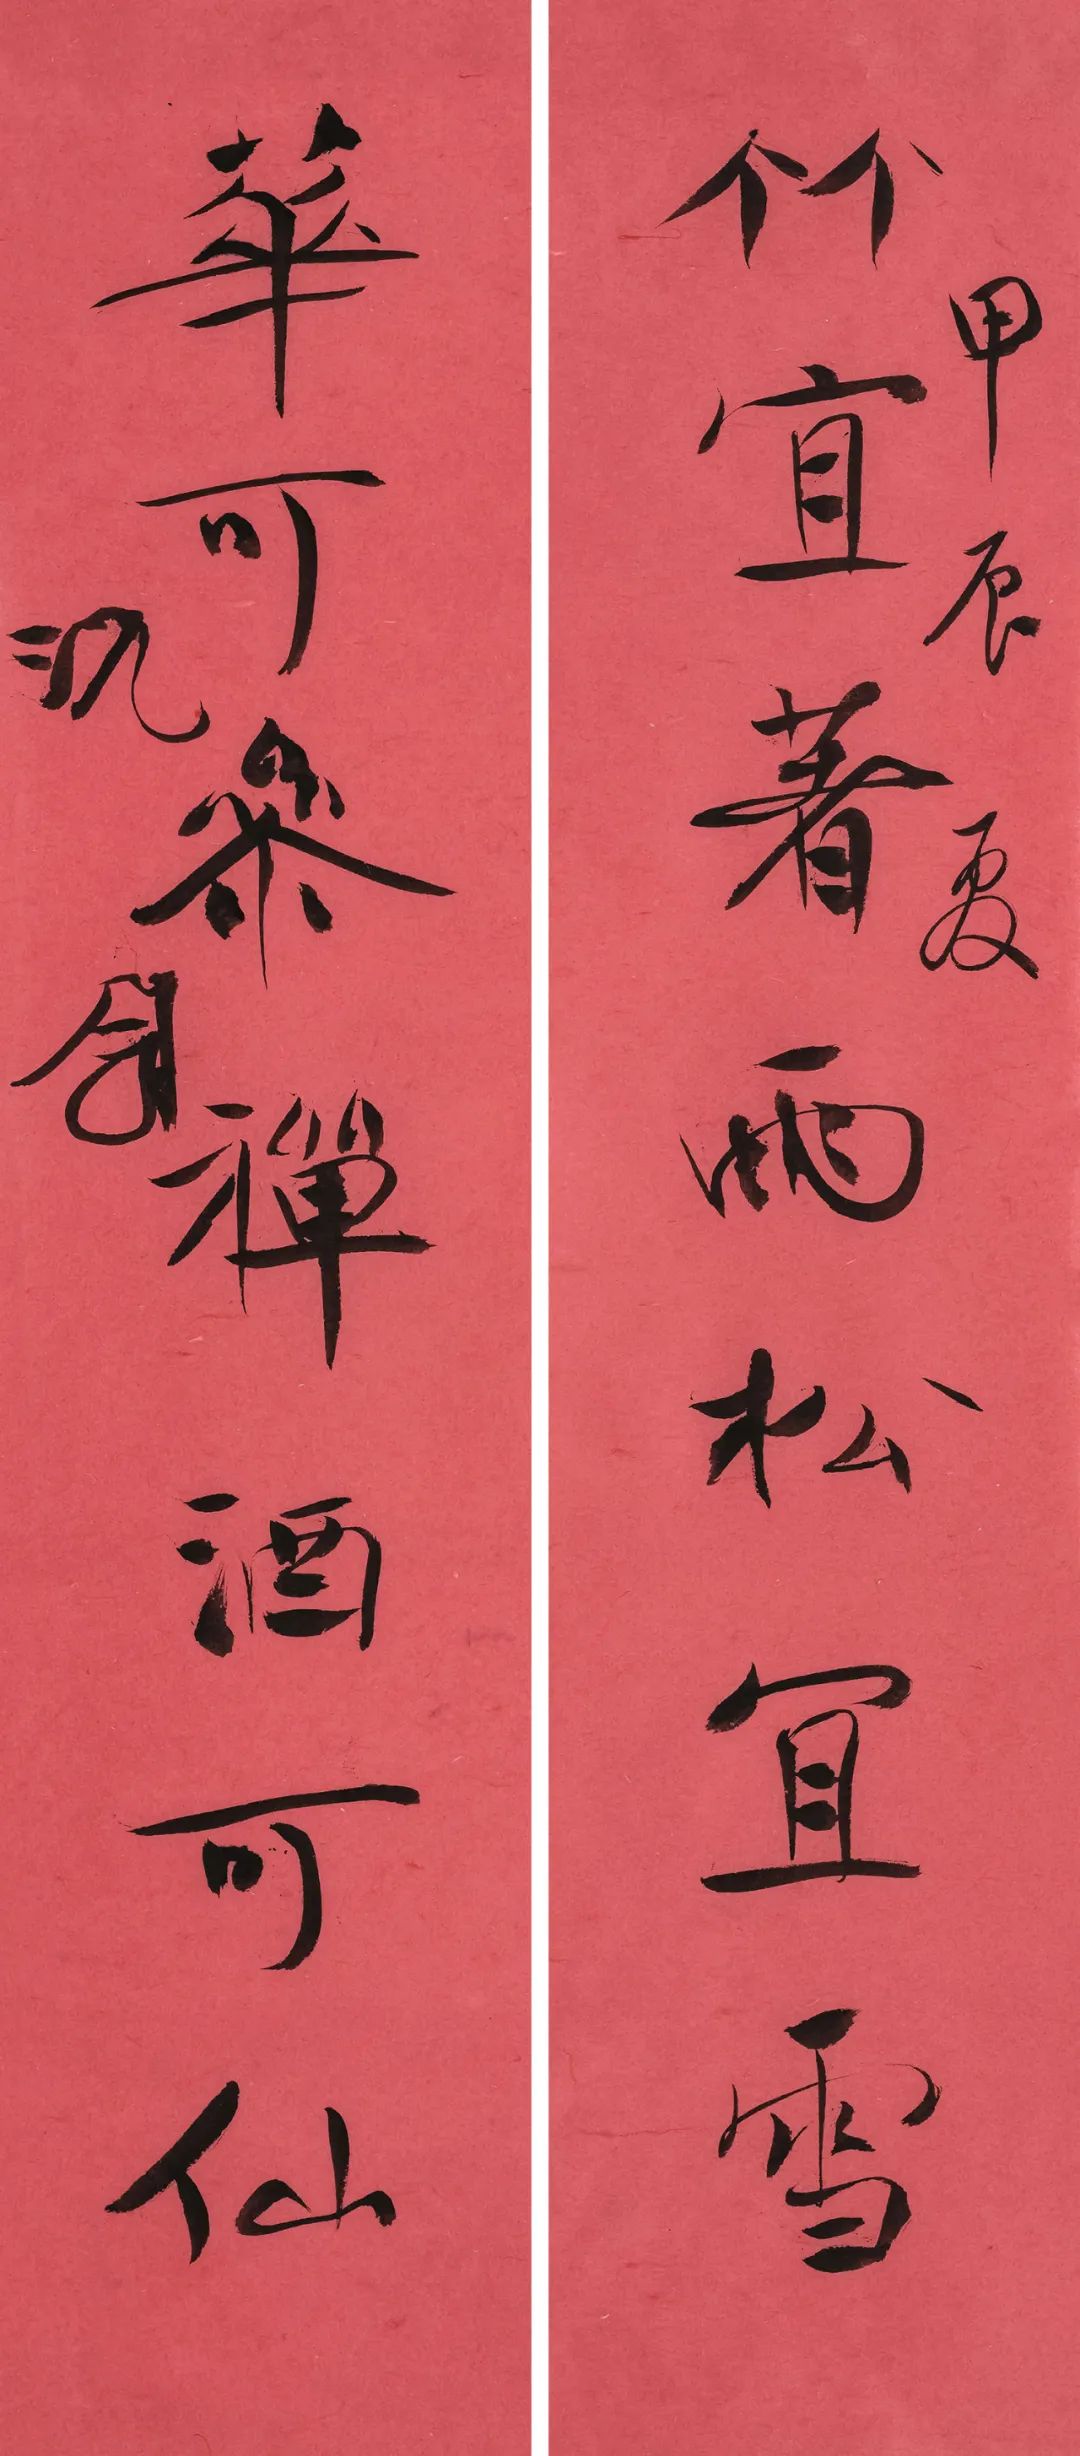 甲辰夏
竹宜著雨松宜雪
華可參禪酒可仙